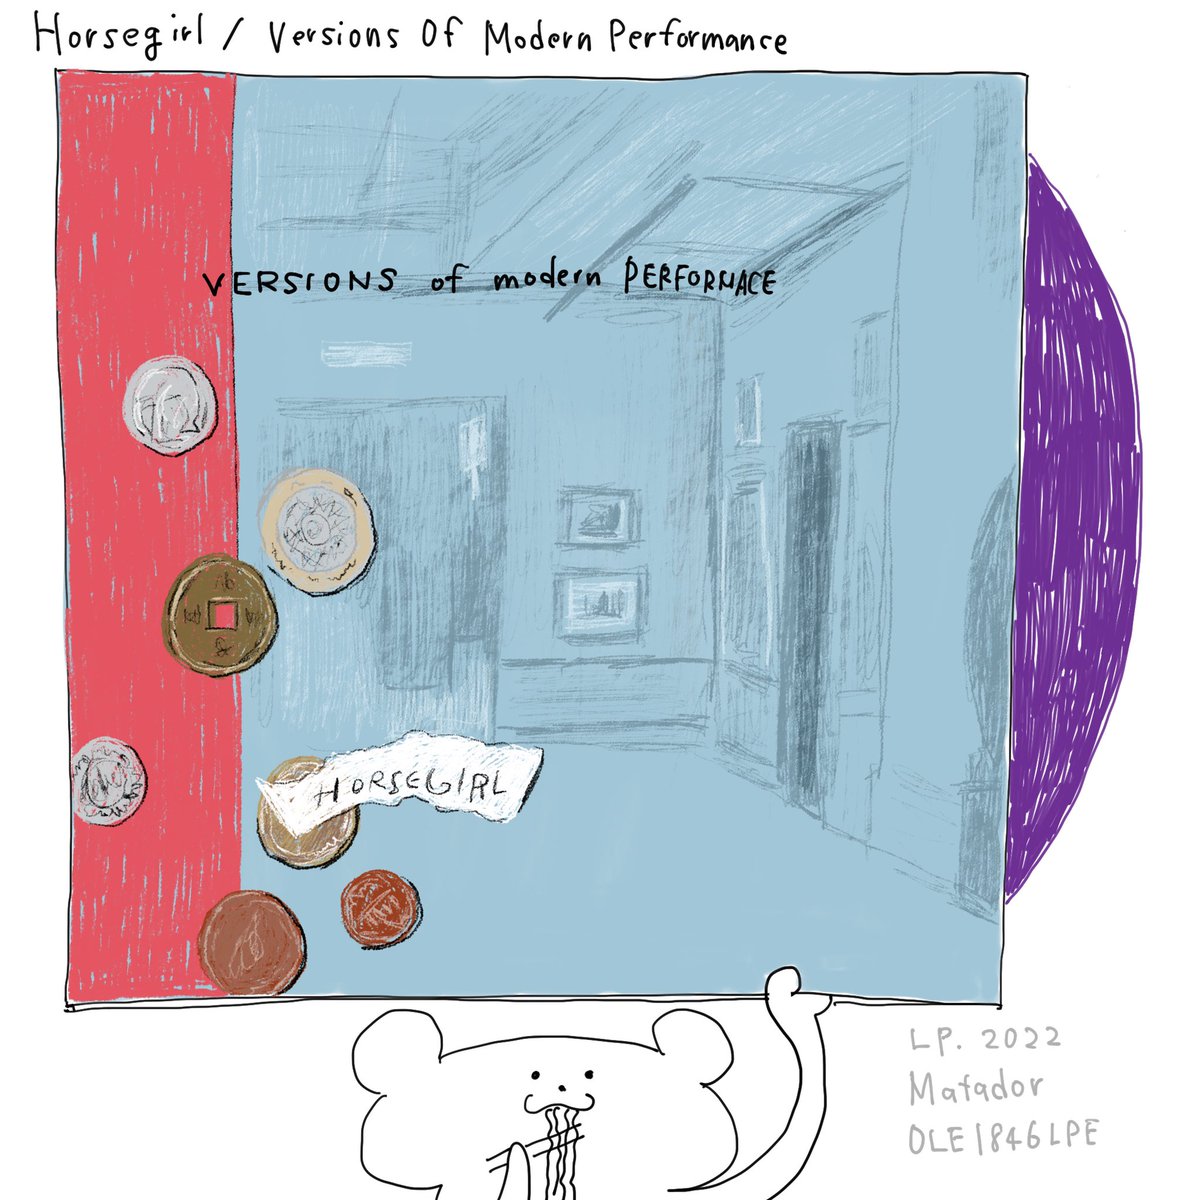 Horsegirl / Versions Of Modern Performance
VERSIONS of modern PERFORMACE
HORSEGIRL
LP. 2022
Matador
OLE1846LPE